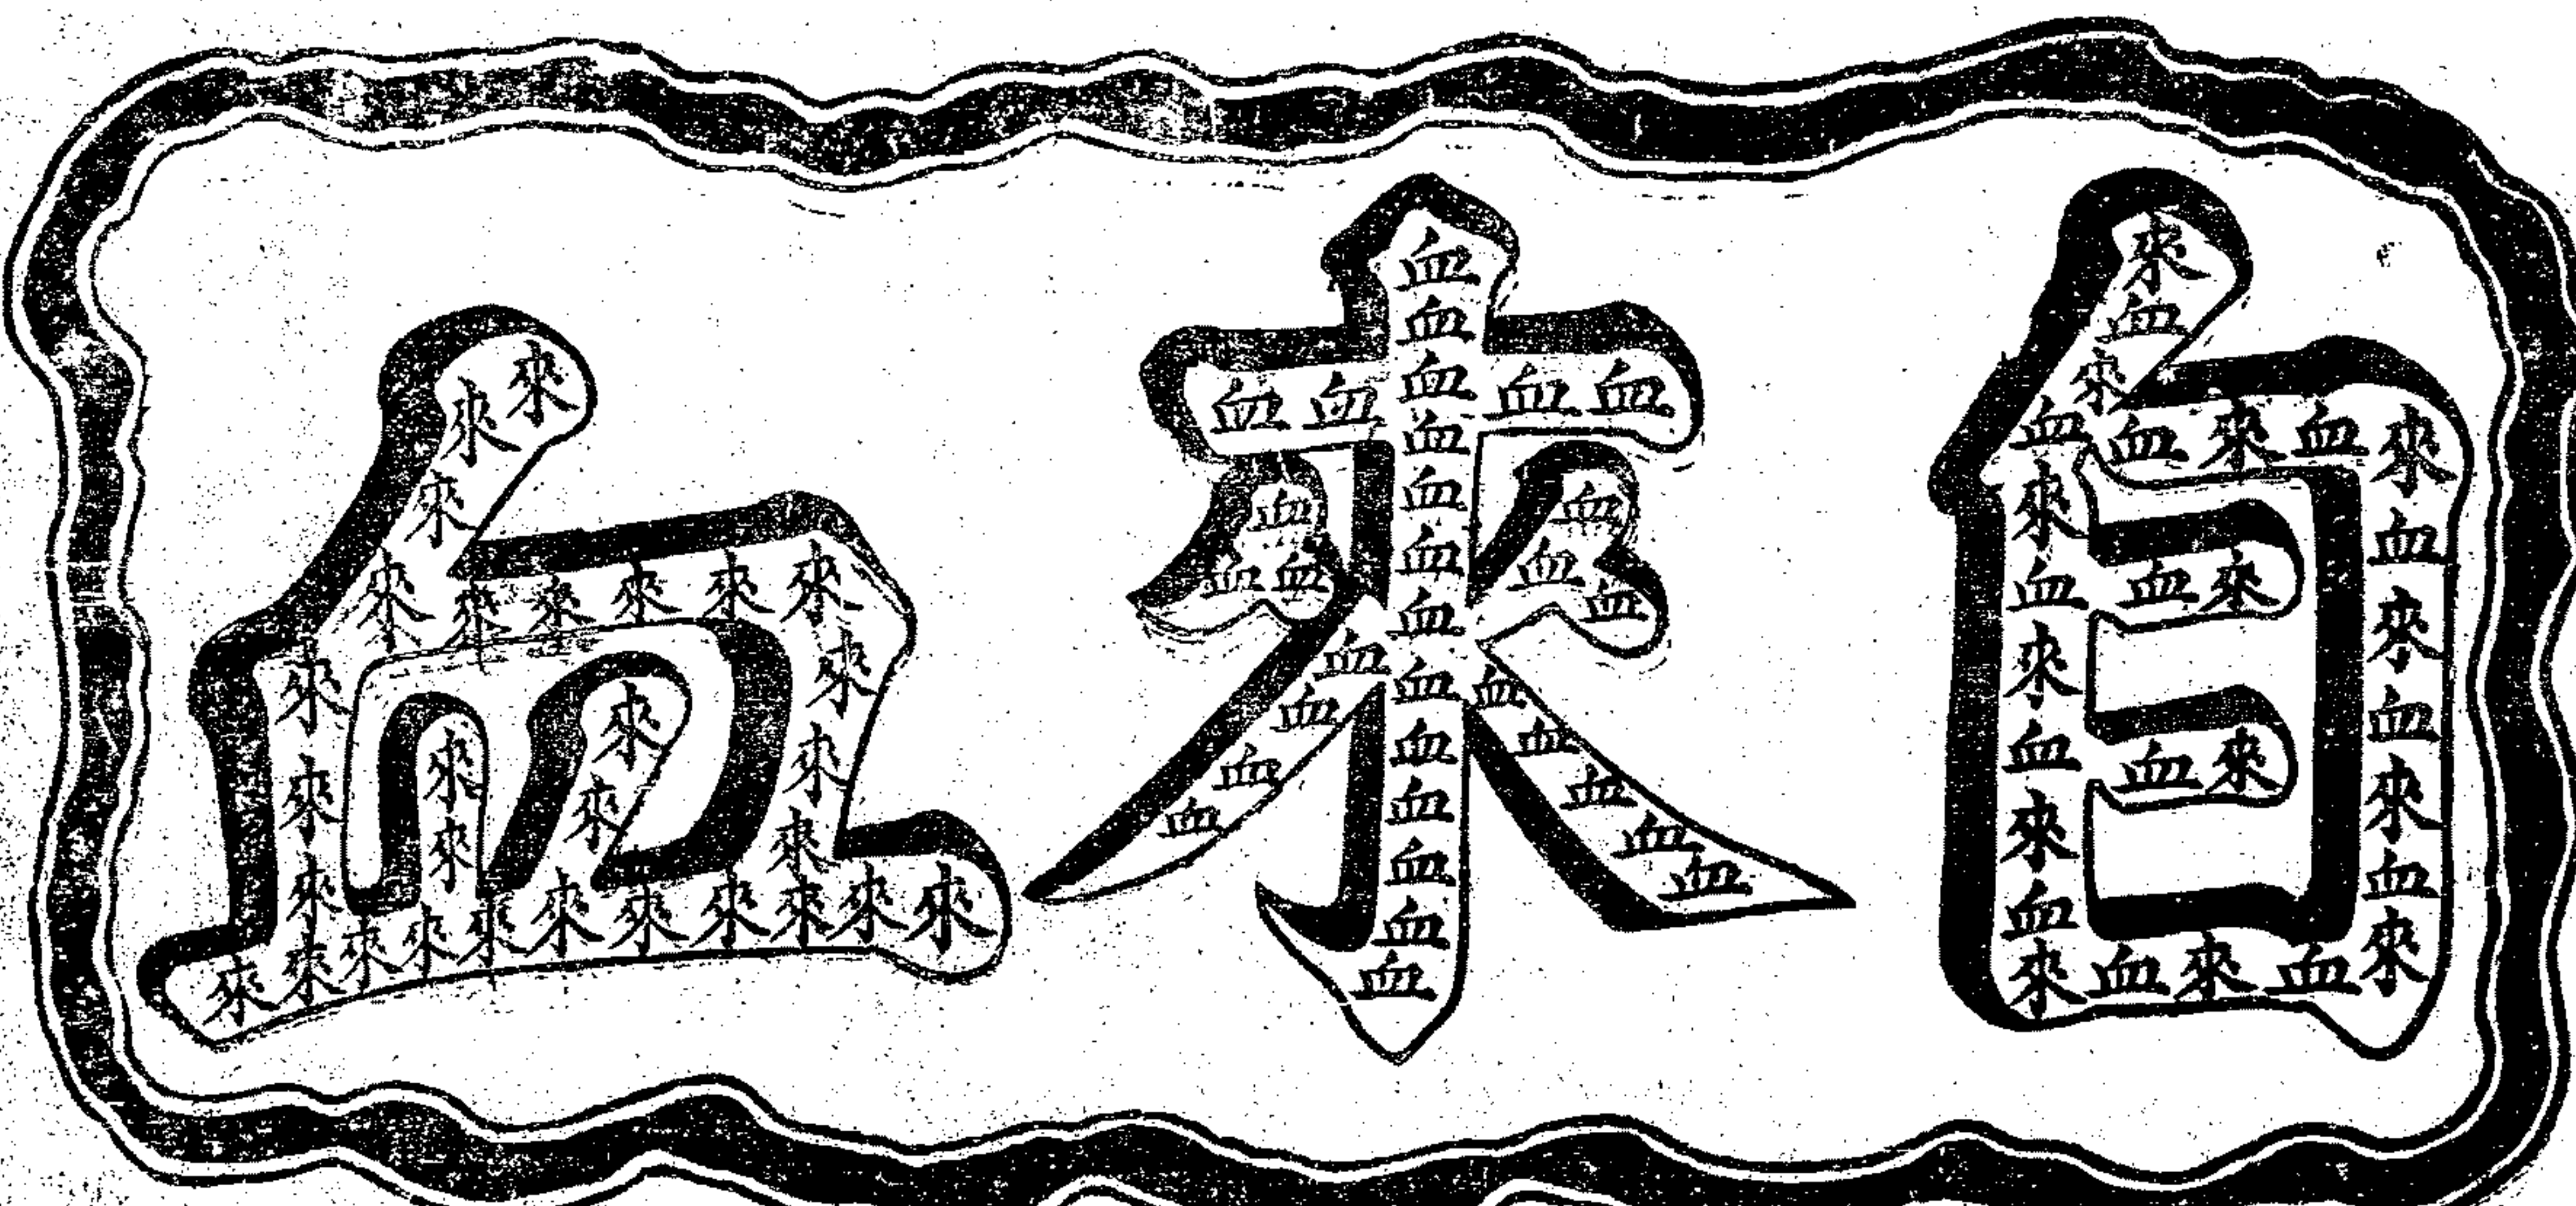 自來血